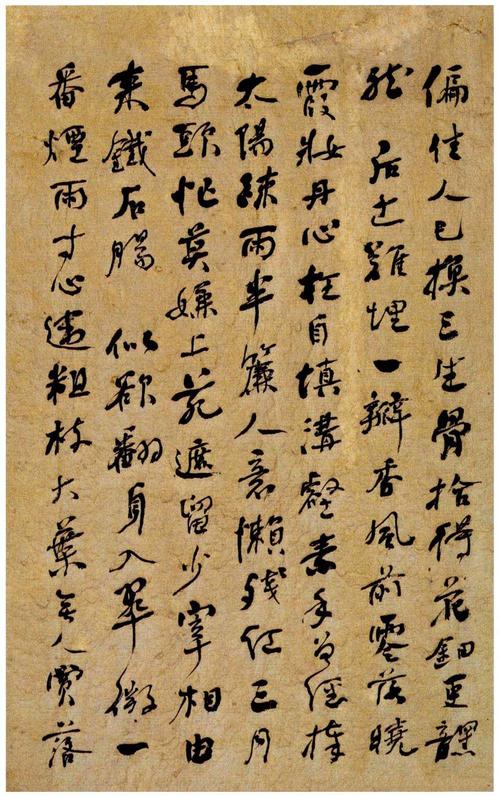 偏佳人已換三生骨拾得花鈿更黯
然 后土難埋一瓣香風前零落曉
霞妝丹心枉自填溝壑素手曾經捧
太陽疎雨半簾人意懶殘紅三月
馬頭忙莫嫌上苑遮留少宰相由
來鐵石腸 似欲翻身入翠微一
番煙雨寸心違粗枝大葉無人買落